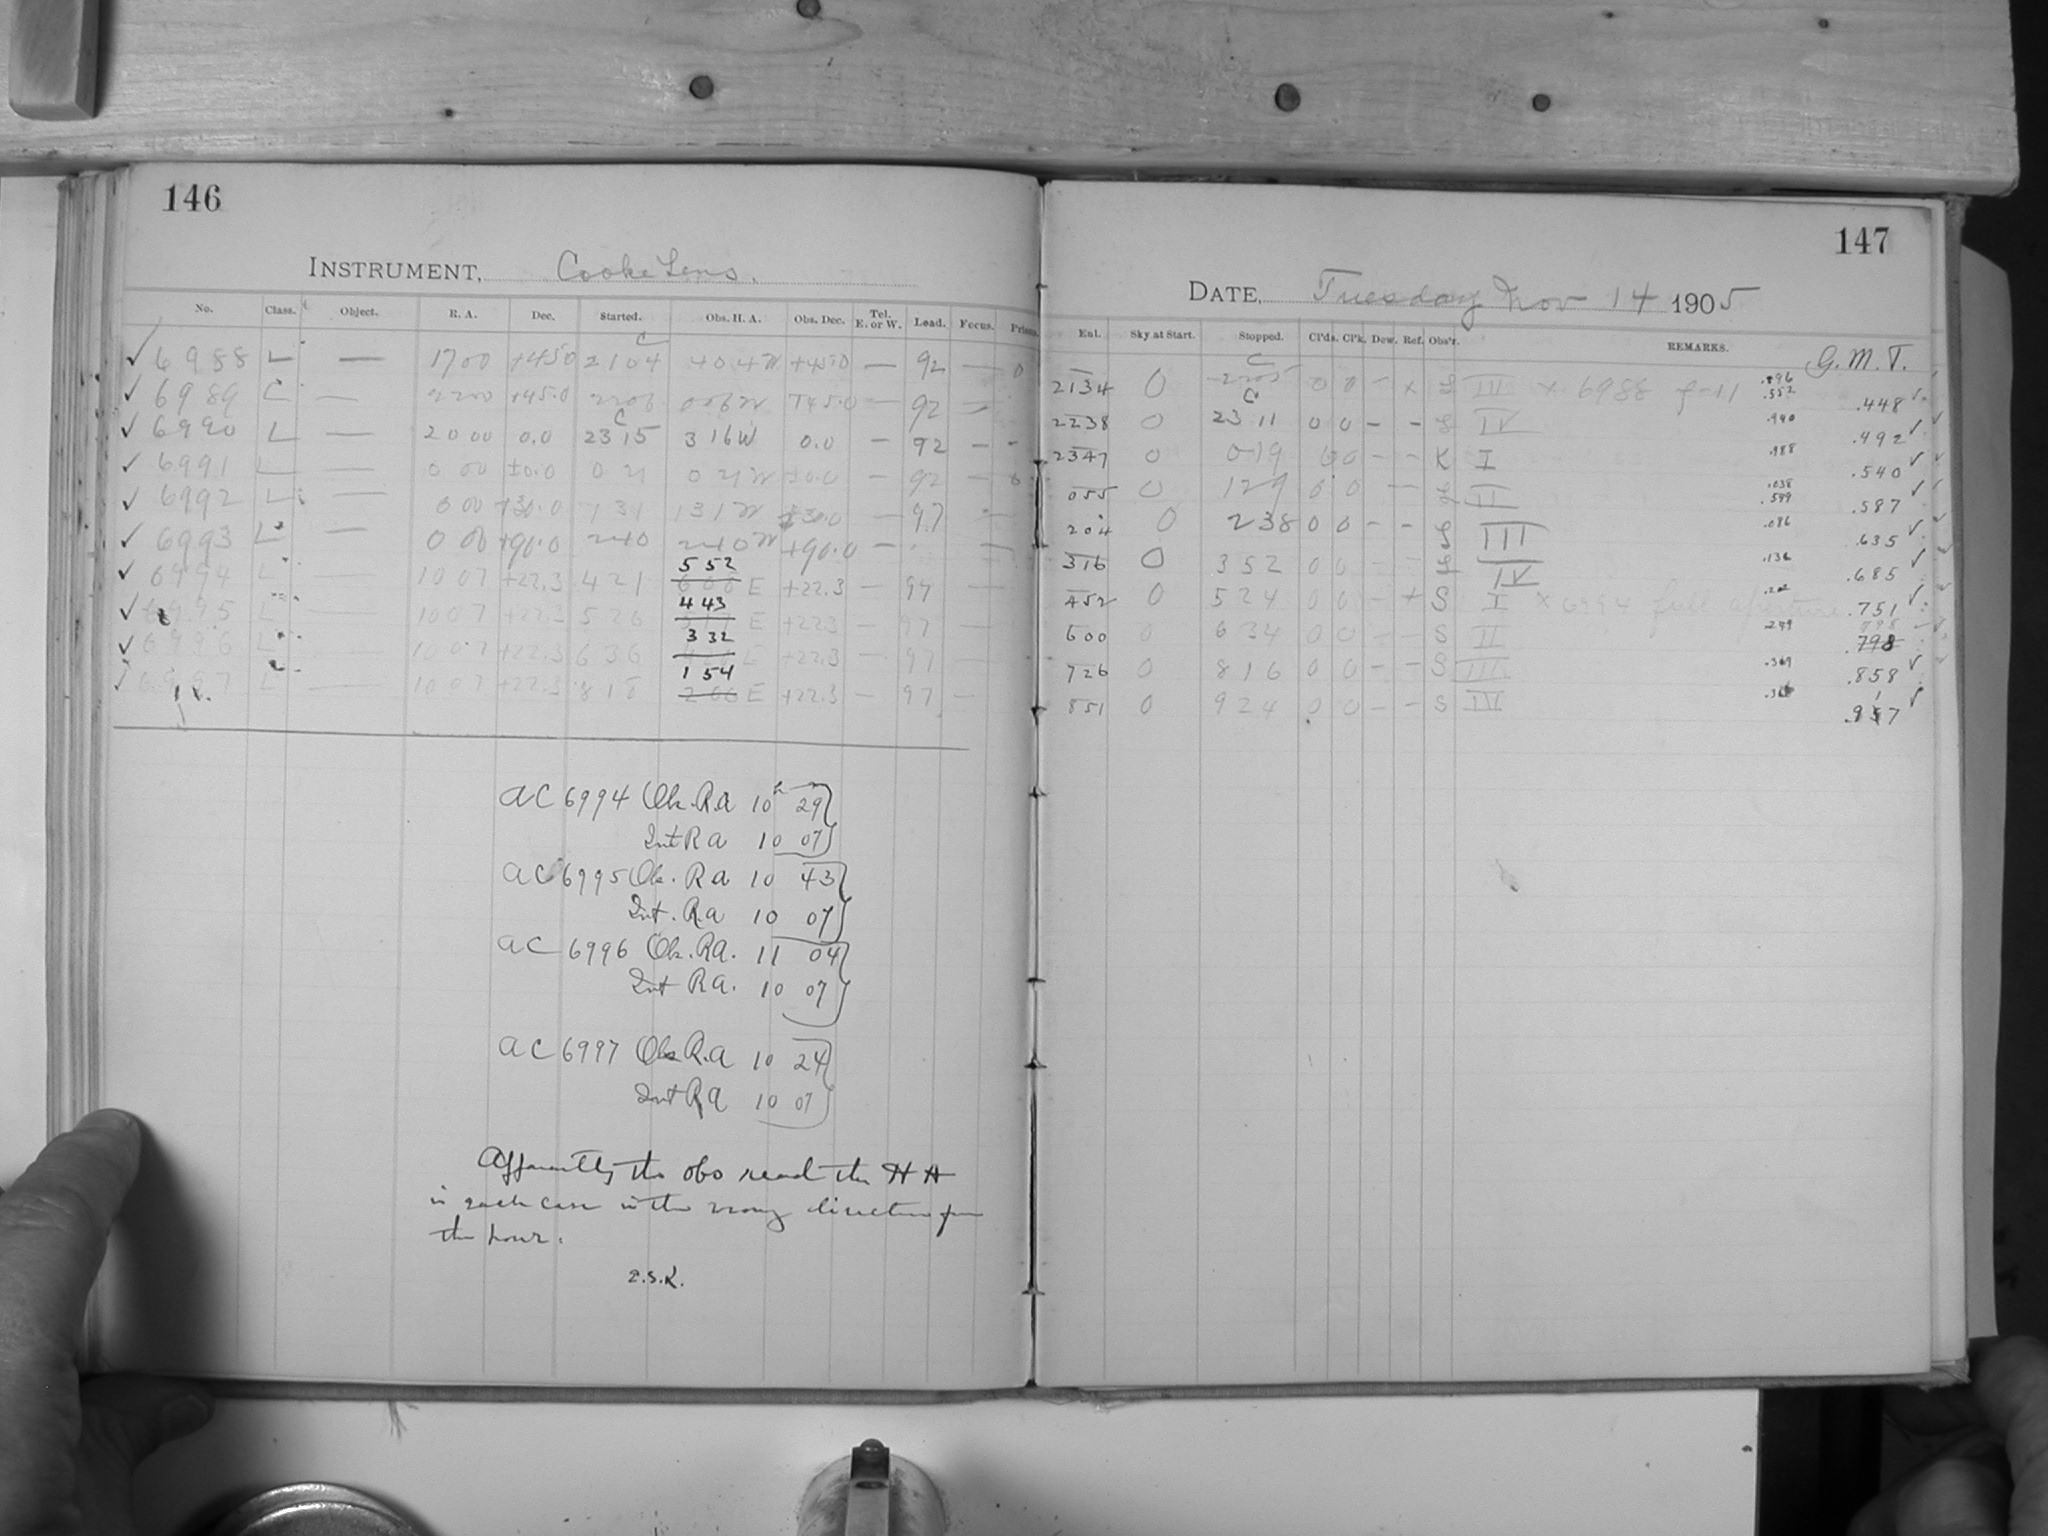 146
INSTRUMENT, Cooke Lens.
No. Class. Object. R. A. Dec. Started. Obs. H. A. Obs. Dec. Tel. E. or W. Load. Focus. Prism.
✓ 6988 L — 1700 +45.0 2104 404W +45.0 — 92 — 0
✓ 6989 C — 2200 +45.0 2206 006W +45.0 — 92 —
✓ 6990 L — 2000 0.0 2315 316W 0.0 — 92 — -
✓ 6991 L — 0 00 ±0.0 0 21 0 21W ±0.0 — 92 — 0
✓ 6992 L — 0 00 +30.0 131 131W +30.0 — 97 -
✓ 6993 L — 0 00 +90.0 240 240W +90.0 —
552
✓ 6994 L — 1007 +22.3 421 608 E +22.3 — 97
443
✓ 6995 L — 1007 +22.3 526 E +22.3 — 97
332
✓ 6996 L — 1007 +22.3 636 E +22.3 — 97
154
6997 L — 1007 +22.3 818 206 E +22.3 — 97 —
AC 6994 Obs. R.A 10h 29m
Int R A 10 07
AC 6995 Obs. R A 10 43
Int. R.A 10 07
AC 6996 Obs. RA. 11 04
Int RA. 10 07
AC 6997 Obs R.A 10 24
Int R A 10 07
Apparently the obs read the H A
in each case in the wrong direction from
the hour.
E.S.K.
147
DATE, Tuesday Nov 14 1905
Enl. Sky at Start. Stopped. Cl'ds. Cl'k. Dew. Ref. Obs'r. REMARKS. G.M.T.
2134 0 2205 0 0 - x S III x 6988 f-11 .896 .552 .448 ✓
2238 0 2311 0 0 - - S IV .940 .492 ✓
2347 0 019 0 0 - - K I .988 .540 ✓
055 0 129 0 0 — S II .038 .587 ✓
204 0 238 0 0 - - S III .086 .635 ✓
316 0 352 0 0 S IV .136 .685 ✓
452 0 524 0 0 - + S I x 6994 full aperture .202 .751 ✓
600 0 634 0 0 - S II .249 .798
726 0 816 0 0 - - S III .309 .858 ✓
851 0 924 0 0 - - S IV .917 ✓